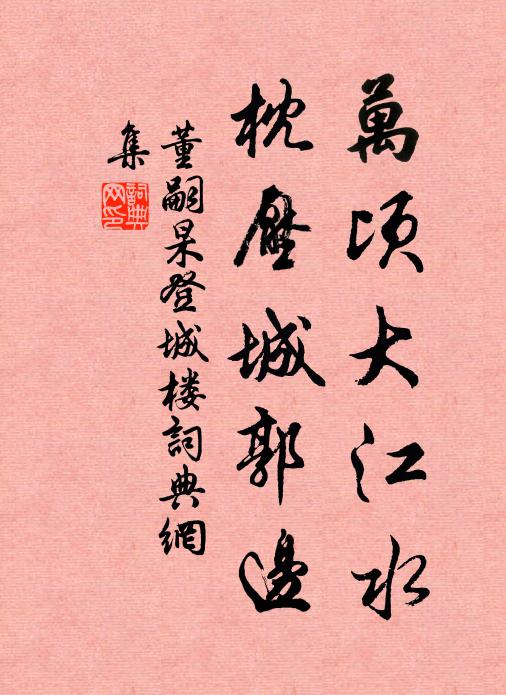 萬頃大江水
枕壓城郭邊
董嗣杲登城樓詞典網
集
詞典
网印